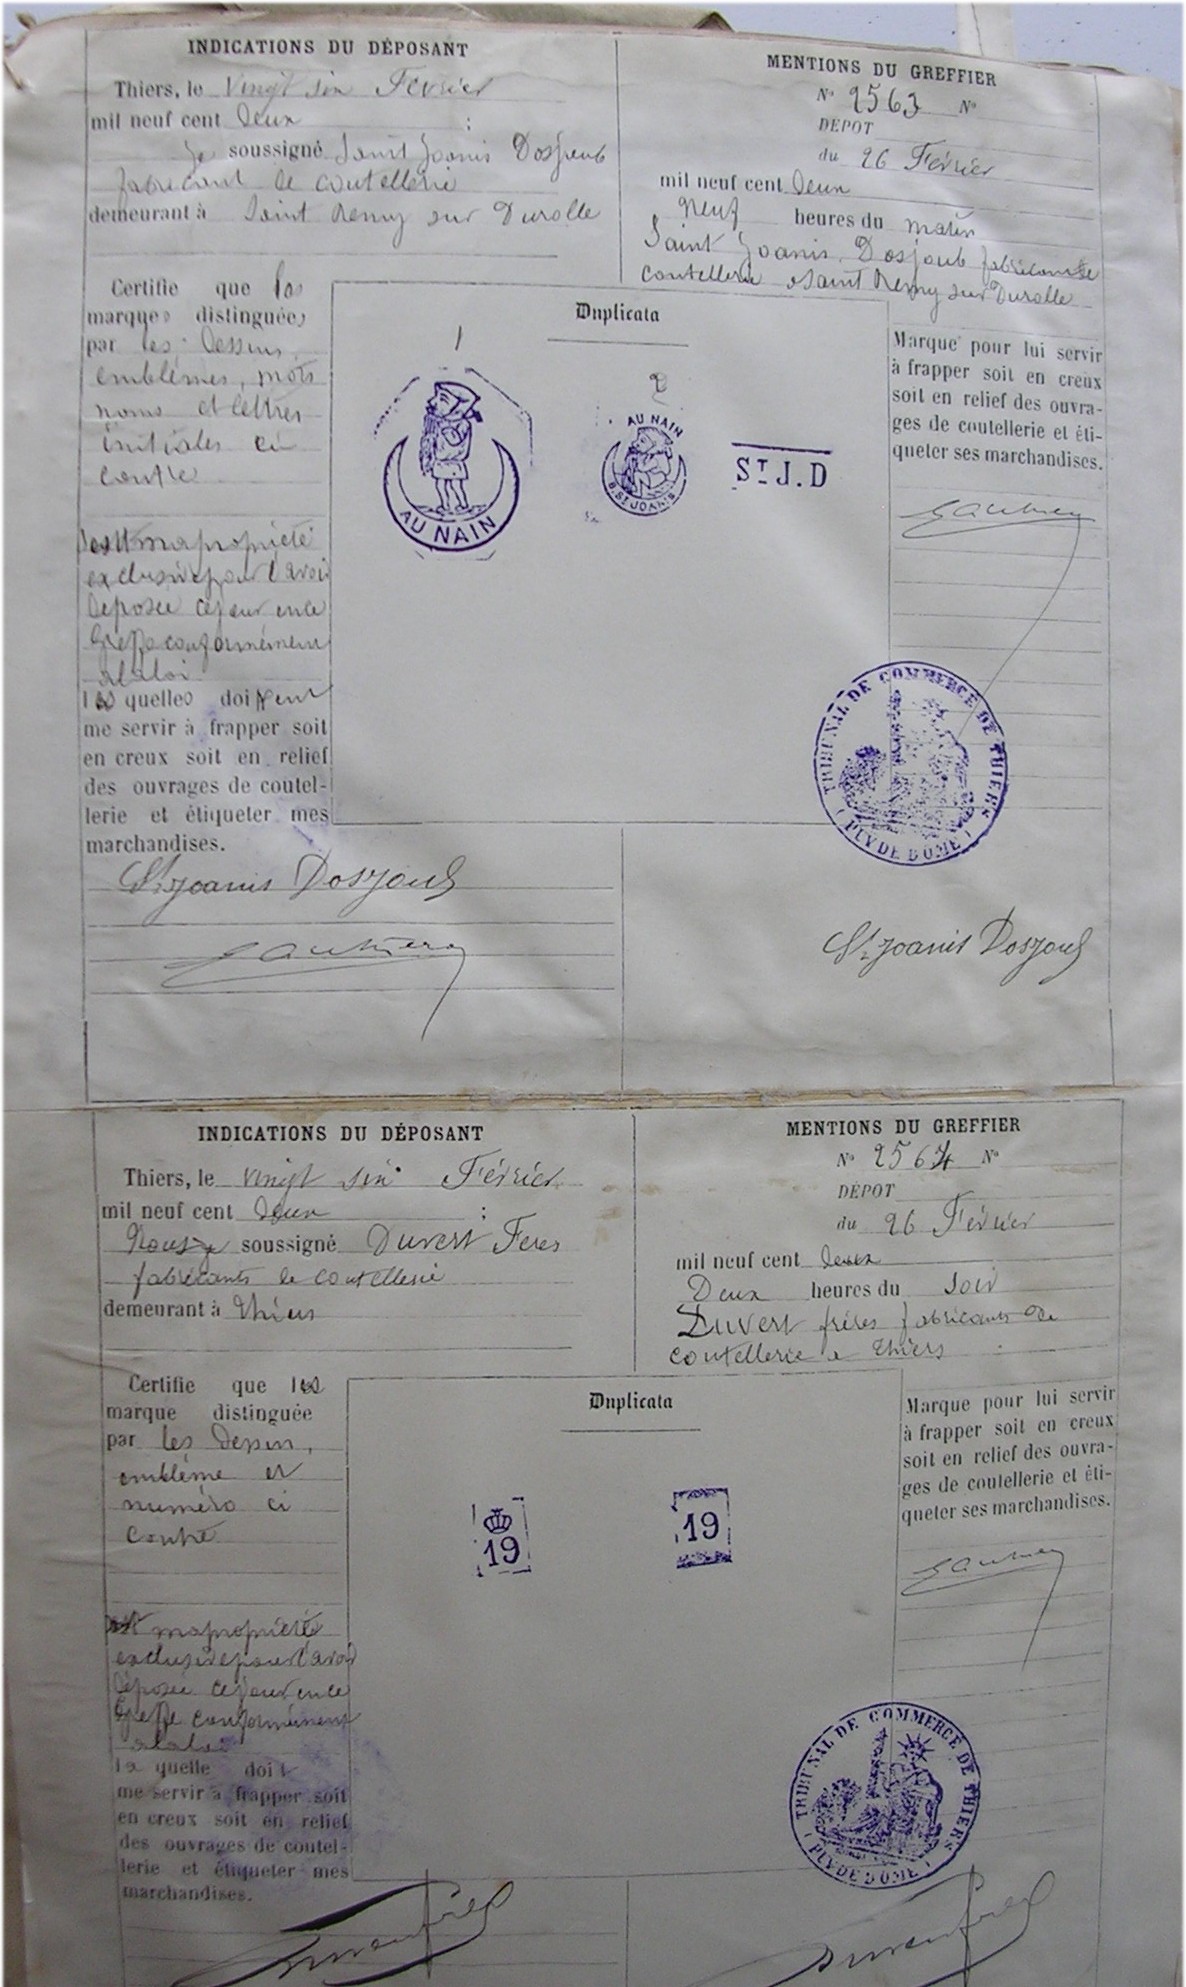 INDICATIONS DU DÉPOSANT
Thiers, le Vingt six Février
mil neuf cent Deux ;
Je soussigné Saint Joanis Dosjoub
fabricant de coutellerie
demeurant à Saint Remy sur Durolle
MENTIONS DU GREFFIER
No 2563 No
DÉPOT
du 26 Février
mil neuf cent Deux
Neuf heures du matin
Saint Joanis Dosjoub fabricant de
coutellerie a Saint Remy sur Durolle
Certifie que les
marques distinguées
par les Dessins,
emblèmes, mots
noms et lettres
initiales ci
contre
Duplicata
1
2
AU NAIN
AU NAIN
B. ST JOANIS
ST J.D
Marque pour lui servir
à frapper soit en creux
soit en relief des ouvra-
ges de coutellerie et éti-
queter ses marchandises.
ma propriété
exclusive pour l'avoir
Déposée ce jour en ce
Greffe conformément
a la loi.
les quelles doivent
me servir à frapper soit
en creux soit en relief
des ouvrages de coutel-
lerie et étiqueter mes
marchandises.
TRIBUNAL DE COMMERCE DE THIERS
( PUY DE DOME )
St Joanis Dosjoub
St Joanis Dosjoub
INDICATIONS DU DÉPOSANT
Thiers, le vingt six Février
mil neuf cent Deux ;
Nous soussigné Duvert Feres
fabricants de coutellerie
demeurant à Thiers
MENTIONS DU GREFFIER
No 2564 No
DÉPOT
du 26 Février
mil neuf cent deux
Deux heures du soir
Duvert frères fabricants de
coutellerie a Thiers
Certifie que la
marque distinguée
par les Depin,
emblème et
numéro ci
contre
Duplicata
19
19
Marque pour lui servir
à frapper soit en creux
soit en relief des ouvra-
ges de coutellerie et éti-
queter ses marchandises.
ma propriété
exclusive pour l'avoir
Déposée ce jour en ce
Greffe conformément
a la loi
la quelle doit
me servir à frapper soit
en creux soit en relief
des ouvrages de coutel-
lerie et étiqueter mes
marchandises.
TRIBUNAL DE COMMERCE DE THIERS
( PUY DE DOME )